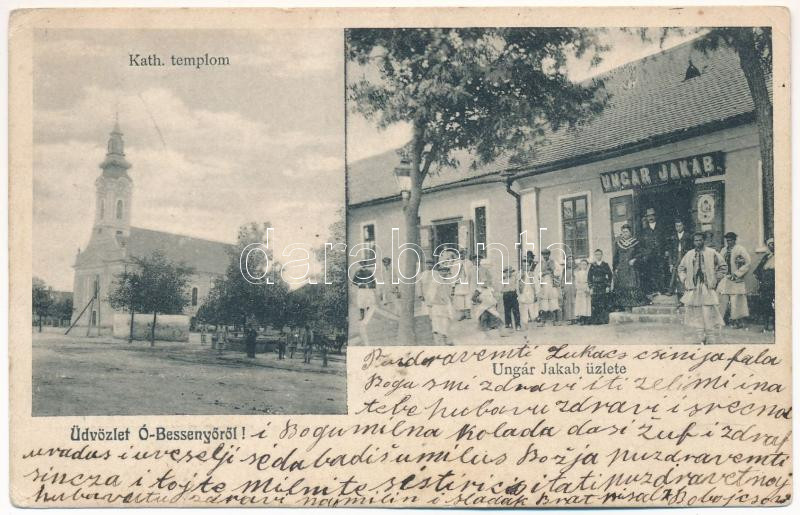 Kath. templom
UNGÁR JAKAB.
darabanth
Ungár Jakab üzlete
Üdvözlet Ó-Bessenyőről!
Pozdravemti Lukacs csinija fala
Bogu smi zdravi i ti zelimi ina
tebe hubavu zdravi i srecna
i Bogumilna Kolada dasi zuf i zdraf
uradus i uveselji seda badi sumilus Božja puzdravemti
sincza i tojte milnite sestrici i tati puzdravetnoj
hubavu zdravi najmilin i sladak Brat